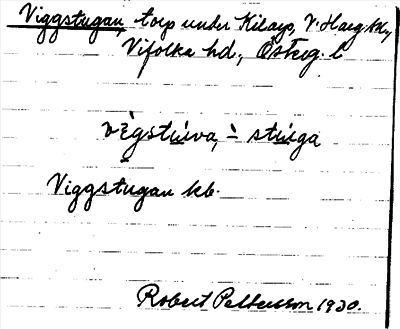 Viggstugan, torp under Kilarp, V. Harg sd.,
Vifolka hd., Östog. l
vègstuva, - stuga
Viggstugan kb.
Robert Pettersson 1930.